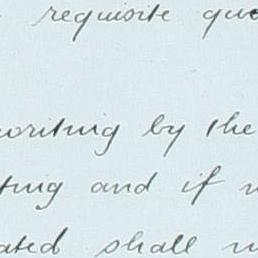 requisite quo
writing by the
ting and if
ated shall